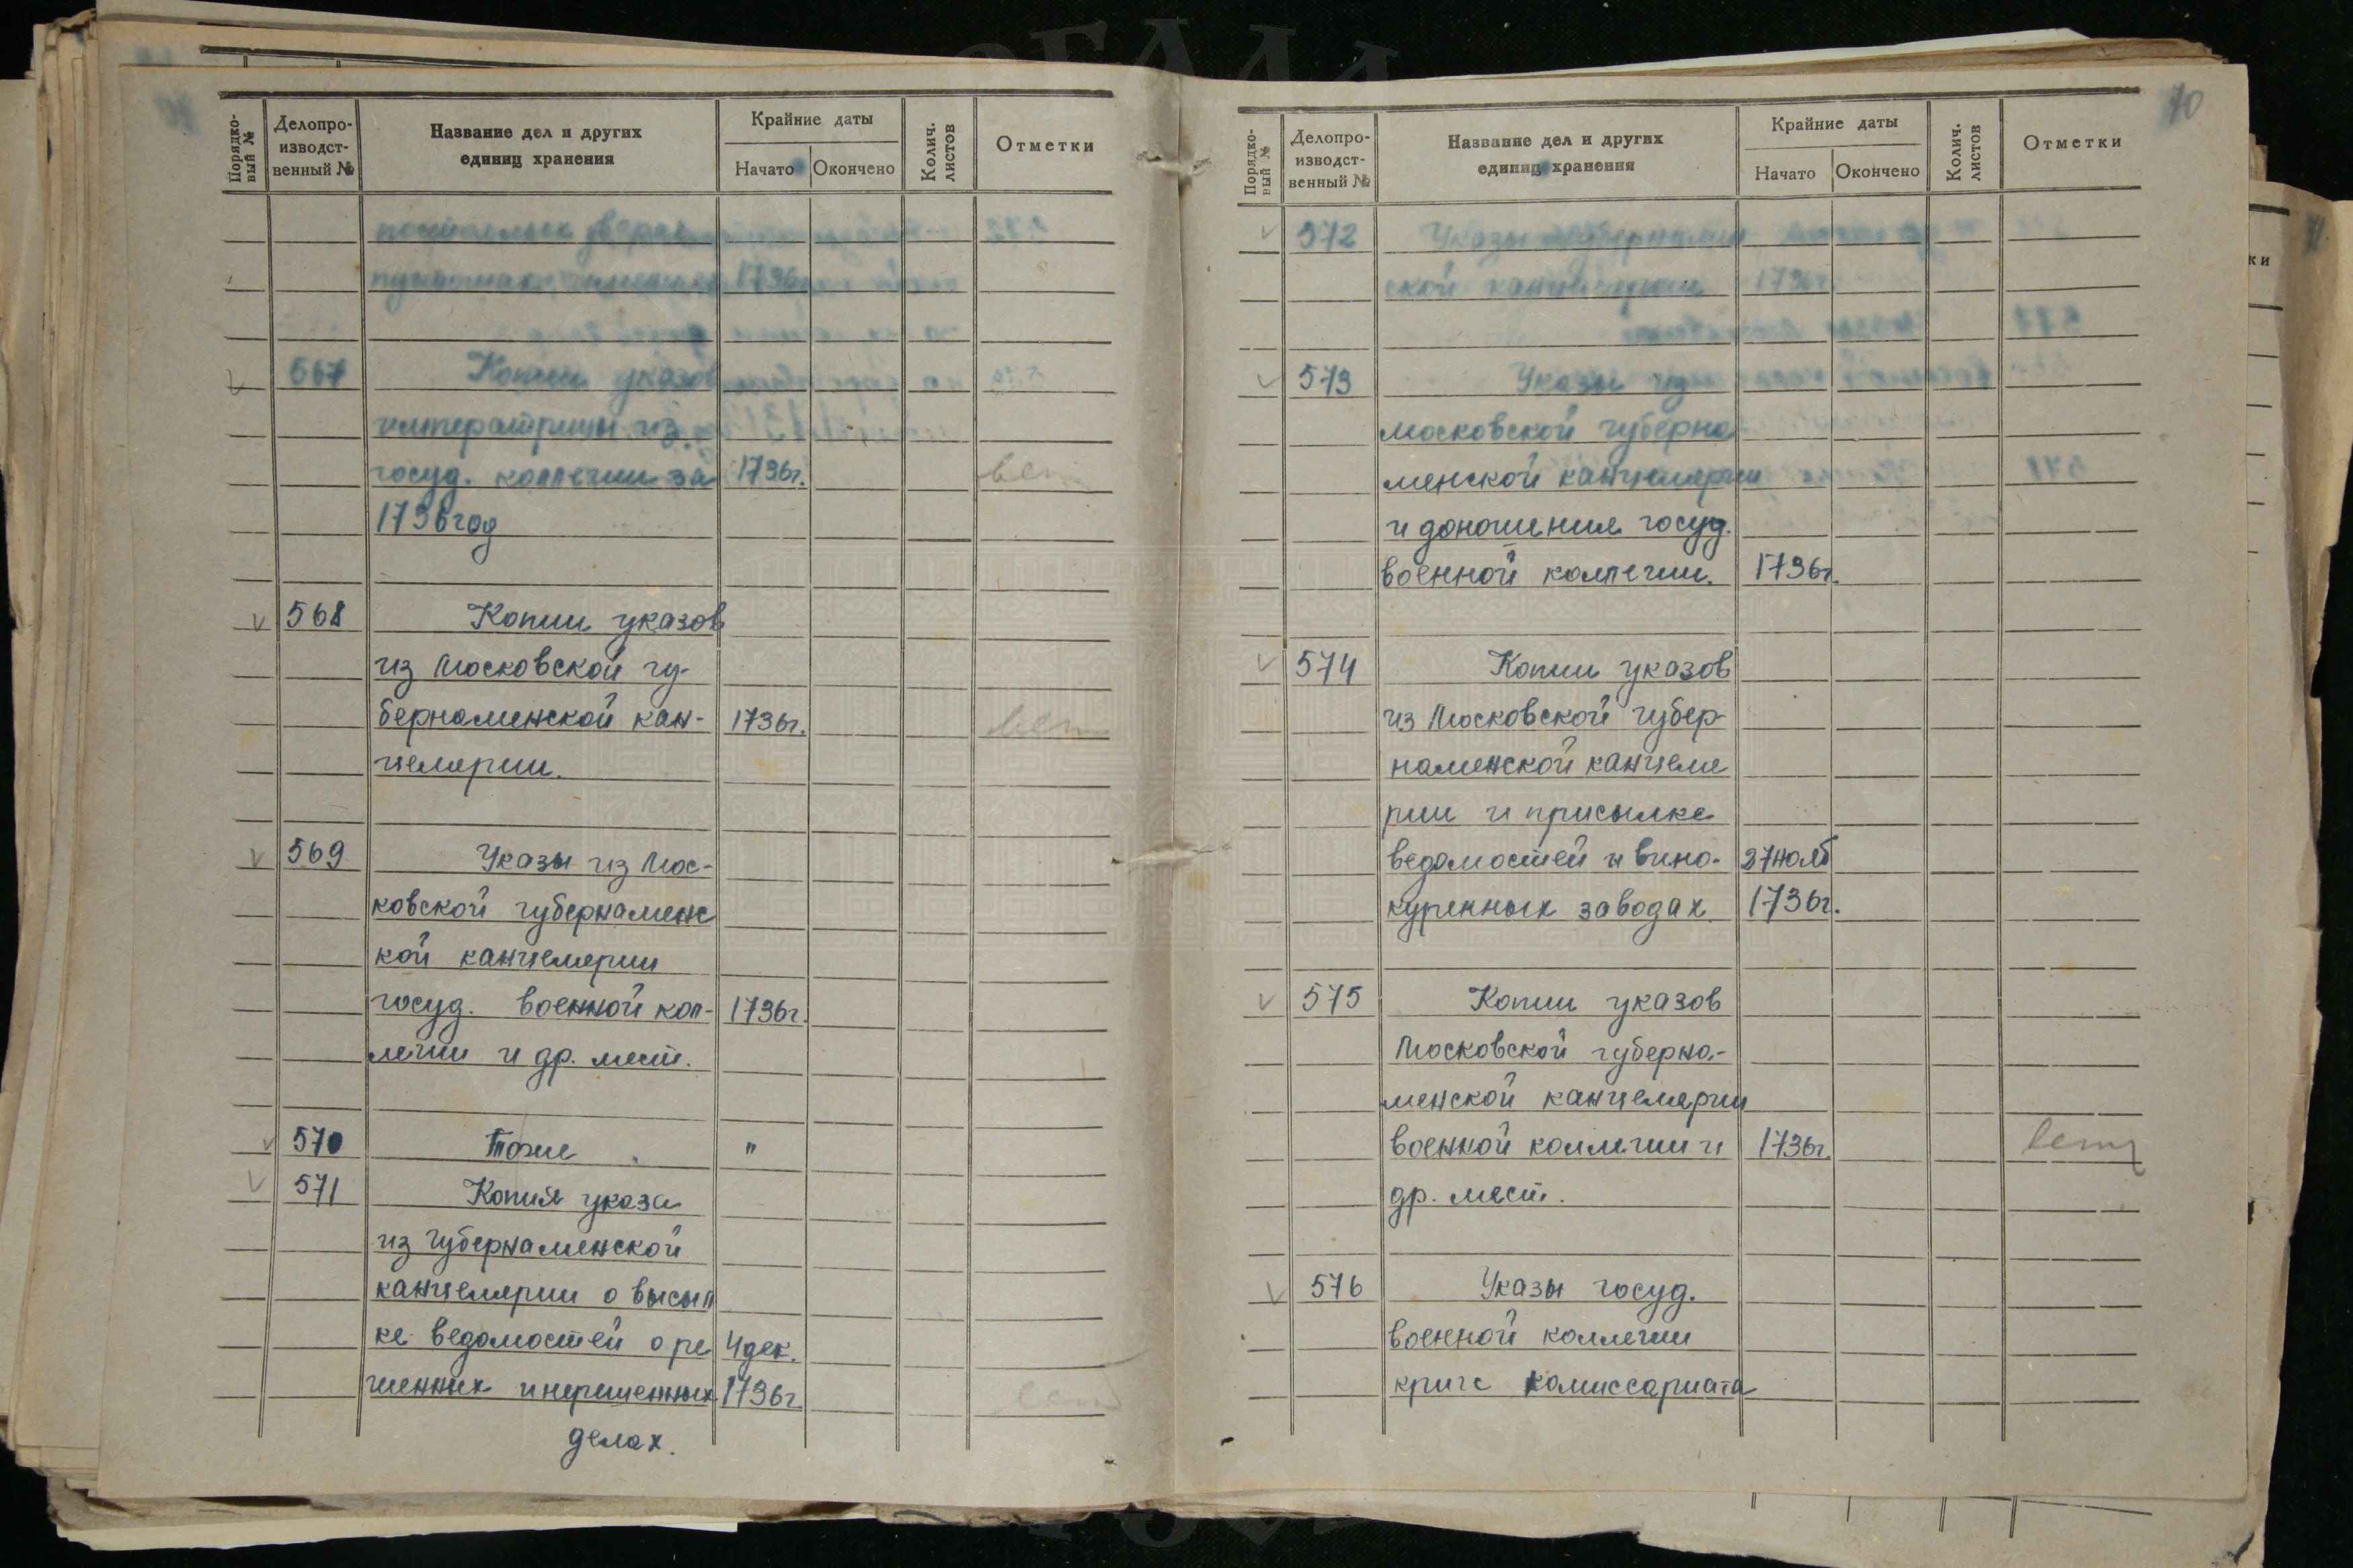 Порядко-
вый №
Делопро-
изводст-
венный №
Название дел и других
единиц хранения
Крайние даты
Начато
Окончено
Колич.
листов
Отметки
1736
567 Копии указов
императрицы из
госуд. коллегии за 1736г.
1736 год
568 Копии указов
из Московской гу-
бернаменской кан- 1736г.
целярии.
569 Указы из Мос-
ковской губернаменс
кой канцелярии
госуд. военной кол- 1736г.
легии и др. мест.
570 Тоже "
571 Копия указа
из губернаменской
канцелярии о высыл
ке ведомостей о ре 4 дек.
шенных и нерешенных 1736г.
делах.
70
Порядко-
вый №
Делопро-
изводст-
венный №
Название дел и других
единиц хранения
Крайние даты
Начато
Окончено
Колич.
листов
Отметки
572 Указы губернамен
ской канцелярии 1736г.
573 Указы из
московской губерна
менской канцелярии
и доношения госуд.
военной коллегии. 1736г.
574 Копии указов
из Московской губер-
наменской канцеля
рии и присылке
ведомостей и вино- 27 нояб
куренных заводах. 1736г.
575 Копии указов
Московской губерна-
менской канцелярии
военной коллегии и 1736г.
др. мест.
576 Указы госуд.
военной коллегии
кригс комиссариата